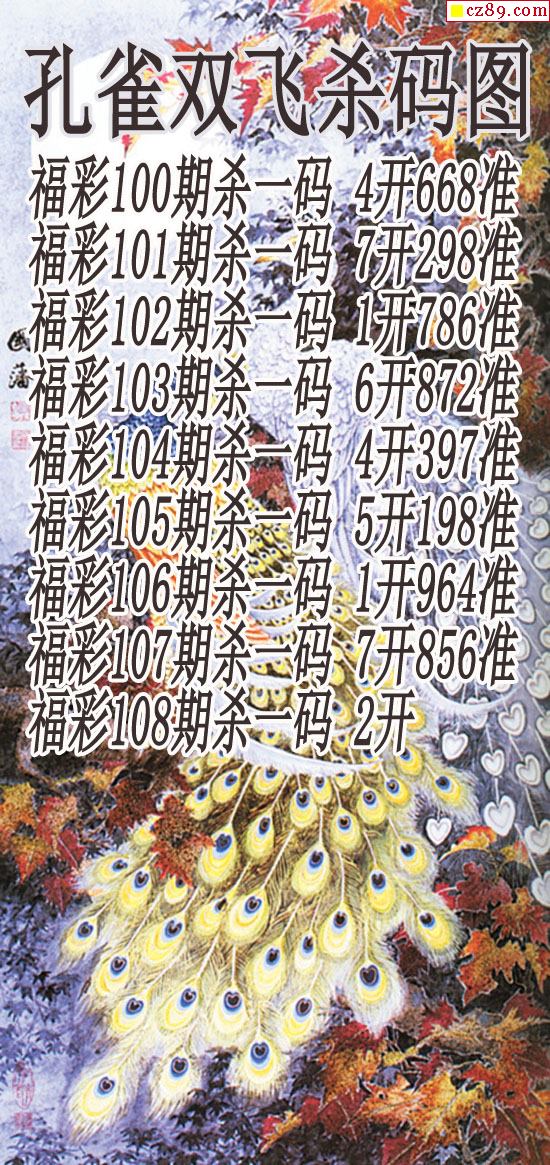 cz89.com
孔雀双飞杀码图
福彩100期杀一码 4开668准
福彩101期杀一码 7开298准
福彩102期杀一码 1开786准
福彩103期杀一码 6开872准
福彩104期杀一码 4开397准
福彩105期杀一码 5开198准
福彩106期杀一码 1开964准
福彩107期杀一码 7开856准
福彩108期杀一码 2开